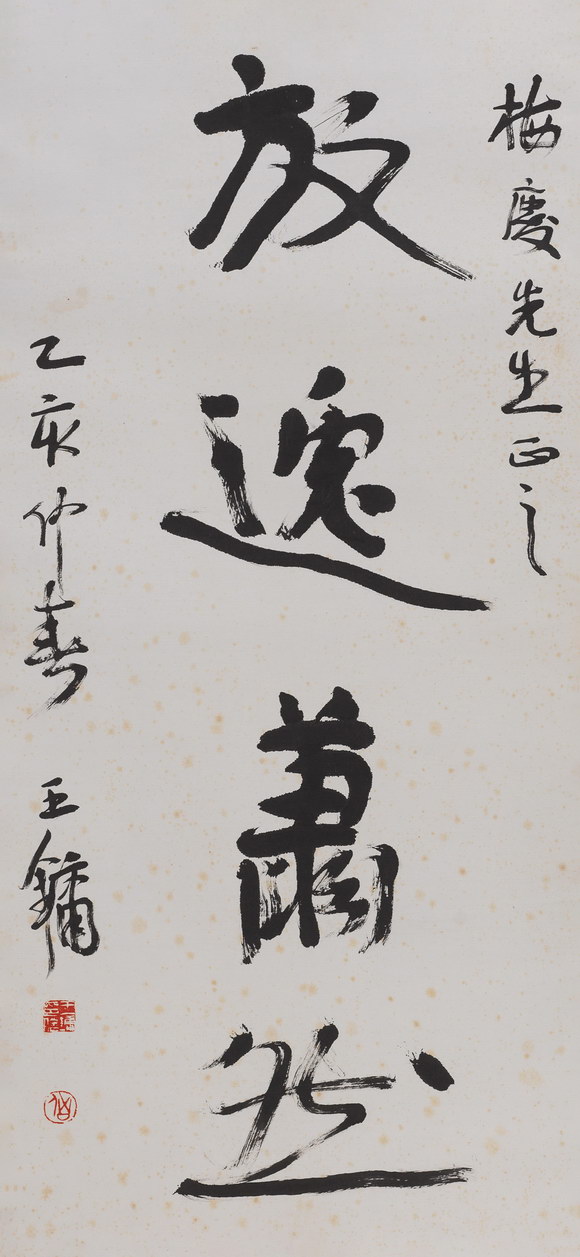 梅慶先生正之
放逸蕭然
乙亥仲春 王鏞